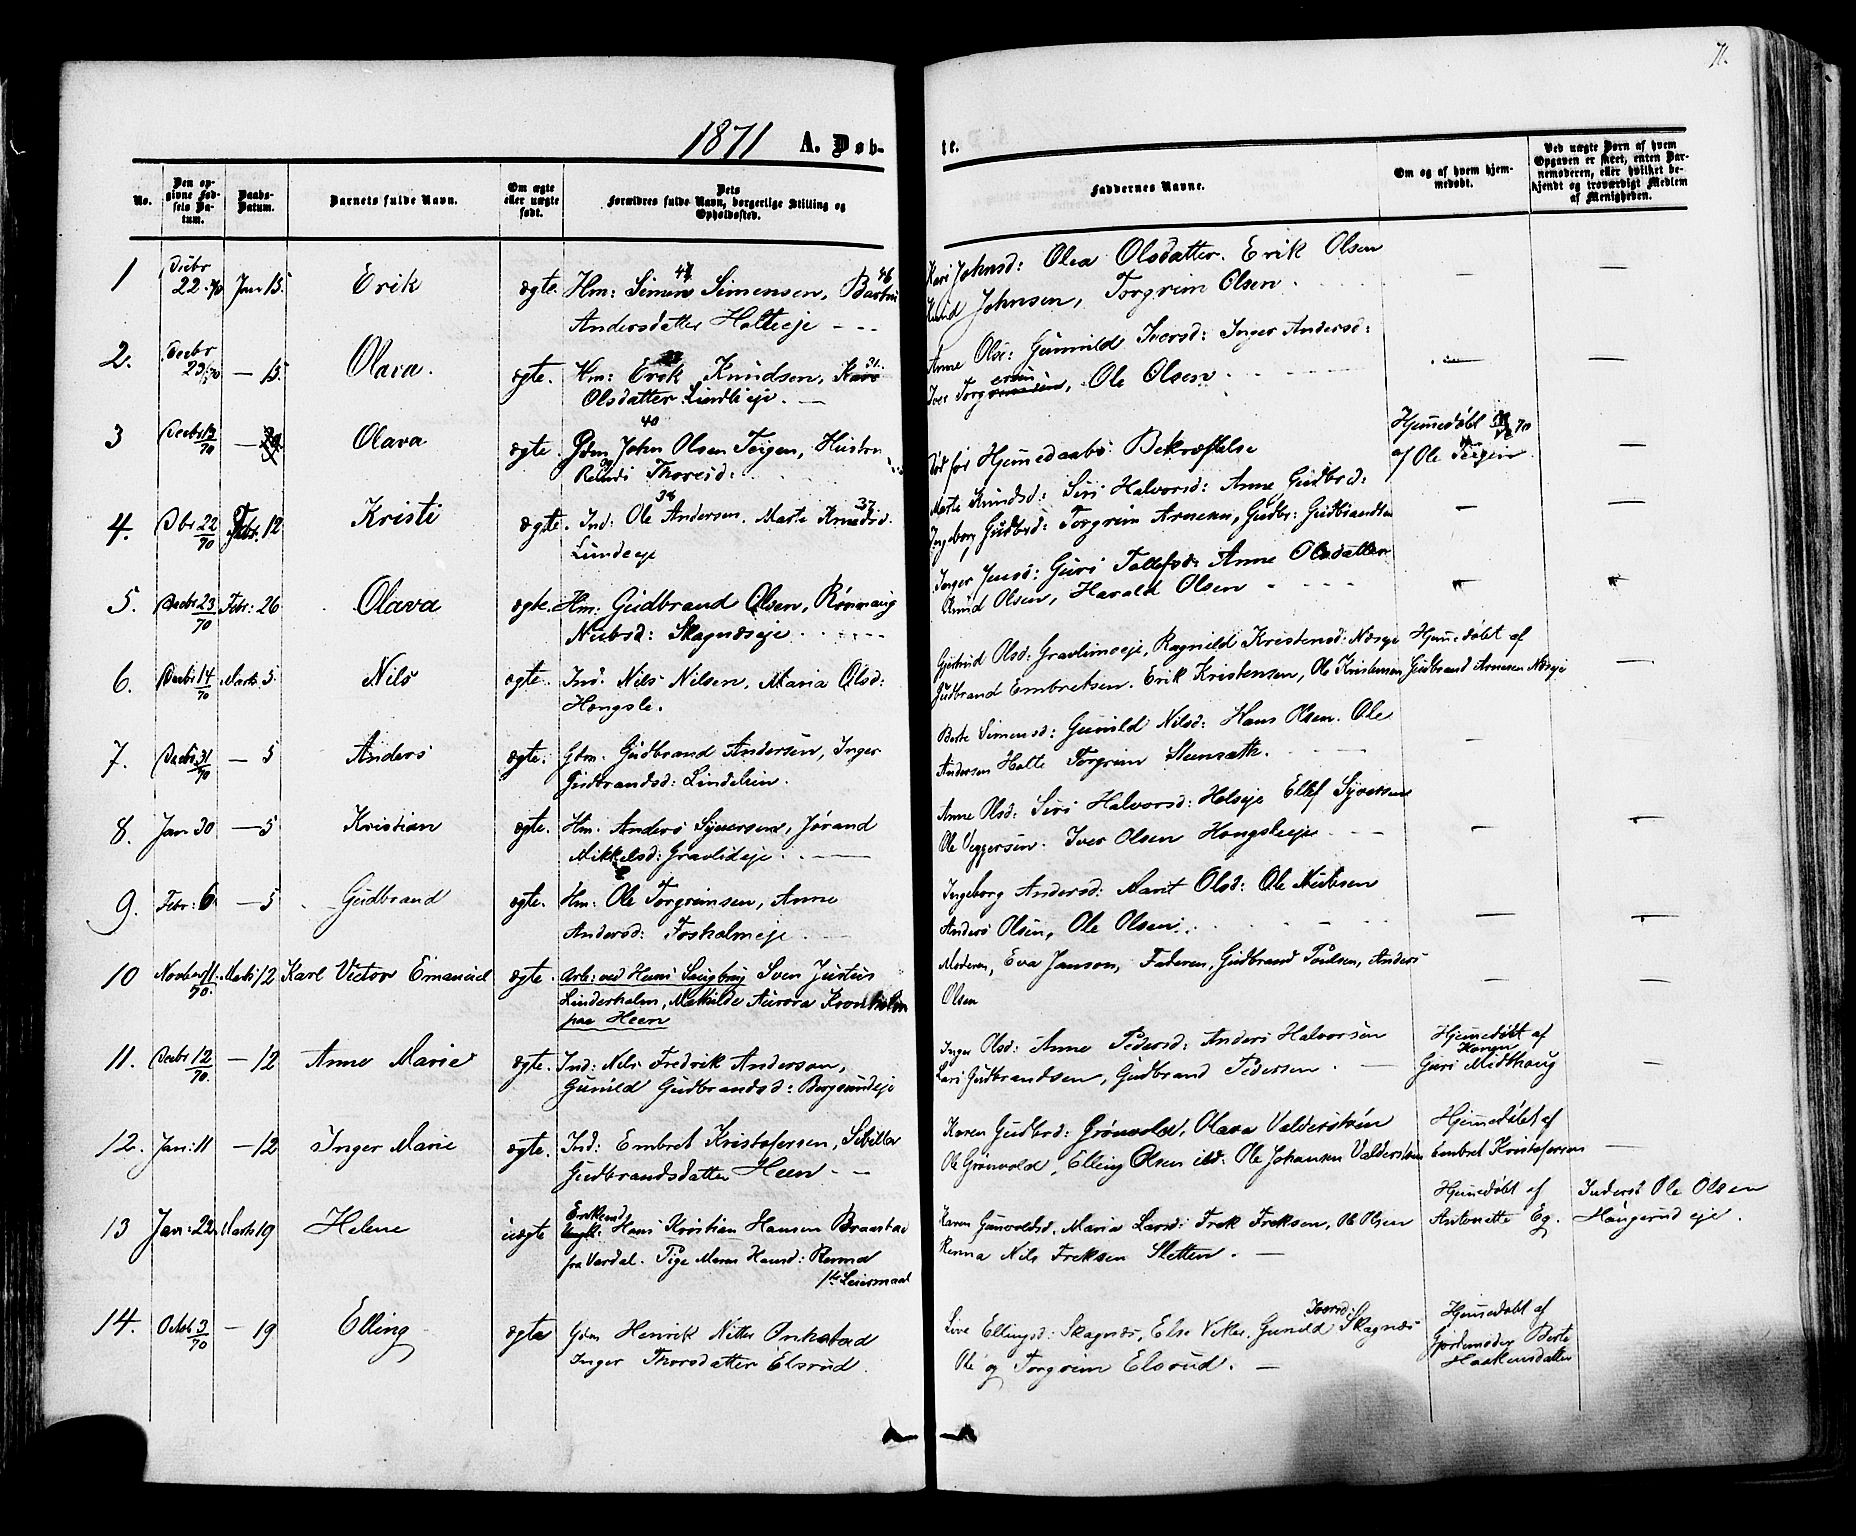 71.
1871 A. Døb-
te.
No.
Den opgivne Fødsels Datum.
Daabs-Datum.
Barnets fulde Navn.
Om ægte eller uægte født.
Dets Forældres fulde Navn, borgerlige Stilling og Opholdssted.
Faddernes Navne.
Om og af hvem hjemmedøbt.
Ved uægte Børn af hvem Opgaven er skeet, enten Barnemoderen, eller hvilket bekjendt og troværdigt Medlem af Menigheden.
1 Decbr 22-70 Jan 15. Erik ægte. Hm: Simen Simensen,
Andersdatter Holteeje
Kari Johnsd: Olea Olsdatter. Erik Olsen
Johnsen, Torgrim Olsen
2. Decbr 23/70 — 15. Olava. ægte. Hm: Erik Knudsen, Kari 31.
Olsdatter Lundbyeje.
Anne Olsd: Gunnild Iversd: Inger Andersd:
Iver Torgersen, Ole Olsen
3 Decbr 13/70 Olava ægte 40 John Olsen Tørgen, Hustru
Thoresd:
Hjemmedaabs Bekræftelse
Hjemmedøbt 70
af Ole
4. Dbr 22/70 Febr. 12 Kristi ægte. Ind: Ole Andersen. Marte Knudsd. 37
Lundeeje
Marte Knudsd: Siri Halvorsd: Anne Gudbrd:
Ingeborg Gudbrd: Torgrim Arnesen, Gudbr: Gudbrandsen
5. Decbr 23/70 Febr: 26 Olava ægte. Hm: Gudbrand Olsen, Rønnaug
Nubsd: Skagnæseje
Inger Jensd: Guri Tollefsd: Anne Olsdatter
Knud Olsen, Harald Olsen
6. Decbr 14/70 Marts 5 Nils ægte. Ind. Nils Nilsen, Maria Olsd:
Hongsle.
Gjertrud Olsd: Gravlimoeje, Ragnild Kristensd: Næseje
Gudbrand Embretsen. Erik Kristensen, Ole Kristensen
Hjemmedøbt af
Gudbrand Arnesen Næseje
7. Decbr 31/70 — 5 Anders ægte. Gbm. Gudbrand Andersen, Inger
Gudbrandsd: Lindelien.
Berte Simensd: Gunild Nilsd: Hans Olsen. Ole
Andersen Holte Torgrim Stensæth.
8. Jan 30 — 5 Kristian ægte. Hm: Anders Syversen, Jørand
Mikkelsd: Gravlideje
Anne Olsd: Siri Halvorsd: Holseje Ellef Syversen
Ole Veggersen. Iver Olsen Hongsleeje
9. Febr: 6. — 5 Gudbrand ægte. Hm: Ole Torgrimsen, Anne
Andersd: Fosholmeje
Ingeborg Andersd: Marit Olsd: Ole Nubsen
Anders Olsen, Ole Olsen.
10 Novber 11/70. Marts 12 Karl Victor Emanuel ægte. Arb: ved Heens Sven Justus
Linderholm, Mathilde Aurora Kronholm
paa Heen
Moderen, Eva Janson, Faderen, Gudbrand Poulsen, Anders
Olsen
11. Decbr 12/70. — 12 Anne Marie ægte. Ind: Nils Fredrik Anderson,
Gunild Gudbrandsd: Bergsundeje
Inger Olsd: Anne Pedersd: Anders Halvorsen
Lars Gudbrandsen, Gudbrand Pedersen.
Hjemmedøbt af
Konen
Guri Midthaug
12. Jan: 11 — 12 Inger Marie ægte. Ind: Embret Kristofersen, Sibilla
Gudbrandsdatter Heen
Karen Gudbrd: Grønvold, Olava Valdersteen
Ole Grønvold, Elling Olsen ibd: Ole Johansen Valdersteen
Hjemmedøbt af
Embret Kristofersen
13 Jan: 22. Marts 19 Helene uægte Hans Kristian Hansen Braastad
fra Vardal. Pige Maren Hansd: Renna
1ste Leiermaal
Karen Gunvoldsd. Maria Larsd: Frek Freksen, Ole Olsen
Renna Nils Freksen Sletten.
Hjemmedøbt af
Antonette Eg.
Inderst Ole Olsen
Haugerud eje.
14. Octob 3/70 — 19 Elling ægte Gbm Henrik Nitter Onkstad
Inger Thorsdatter Elsrud.
Live Ellingsd: Skagnæs, Else Veker. Gunild Iversd: Skagnæs
Ole og Torgrim Elsrud.
Hjemmedøbt af
Gjordemoder Berte
Haakensdatter